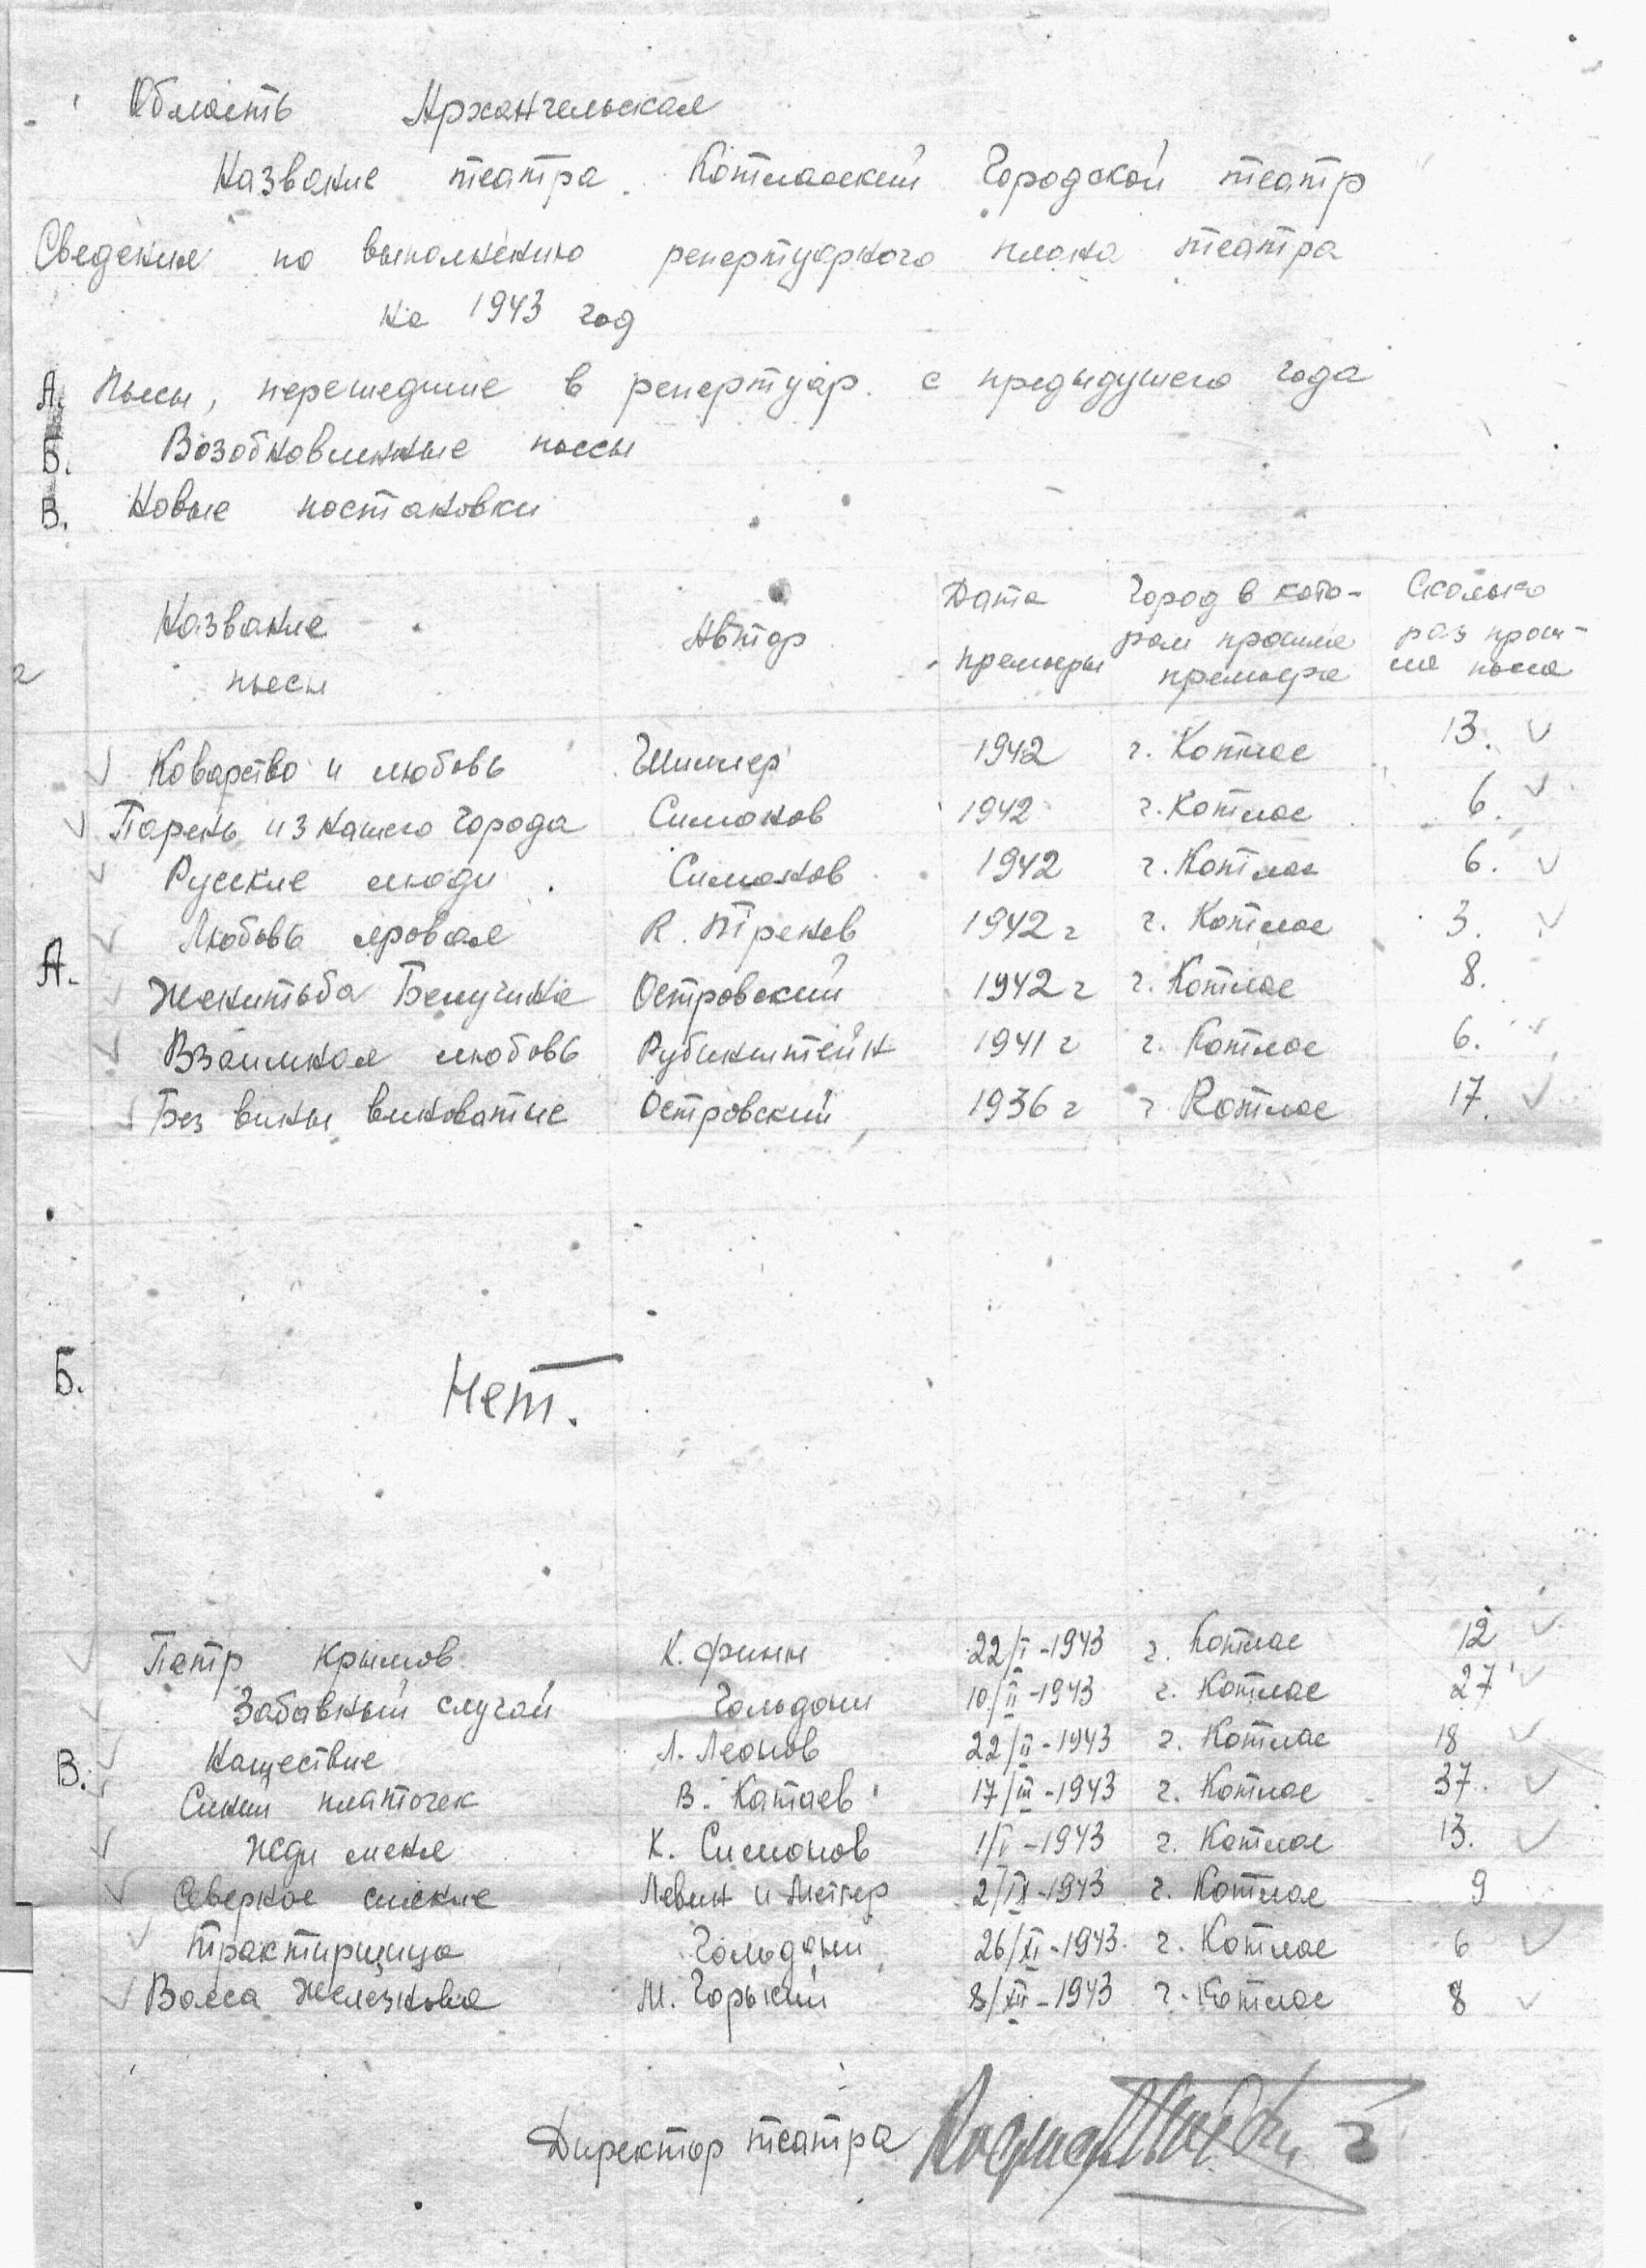 Область Архангельская
Название театра. Котласский Городской театр
Сведения по выполнению репертуарного плана театра
на 1943 год
А. Пьесы, перешедшие в репертуар с предыдущего года
Б. Возобновленные пьесы
В. Новые постановки
Название пьесы Автор Дата премьеры Город в кото-ром прошла премьера Сколько раз прош-ла пьеса
А.
Коварство и любовь Шиллер 1942 г. Котлас 13.
Парень из нашего города Симонов 1942 г. Котлас 6.
Русские люди Симонов 1942 г. Котлас 6.
Любовь яровая К. Тренев 1942 г г. Котлас 3.
Женитьба Белугина Островский 1942 г г. Котлас 8.
Взаимная любовь Рубинштейн 1941 г г. Котлас 6.
Без вины виноватые Островский 1936 г г. Котлас 17.
Б. Нет.
В.
Петр Крымов К. Финн 22/I-1943 г. Котлас 12
Забавный случай Гольдони 10/II-1943 г. Котлас 27
Нашествие Л. Леонов 22/II-1943 г. Котлас 18
Синий платочек В. Катаев 17/III-1943 г. Котлас 37.
Жди меня К. Симонов 1/V-1943 г. Котлас 13.
Северное сияние Левин и Метер 2/IX-1943 г. Котлас 9
Трактирщица Гольдони 26/XI-1943. г. Котлас 6
Васса Железнова М. Горький 8/XII-1943 г. Котлас 8
Директор театра